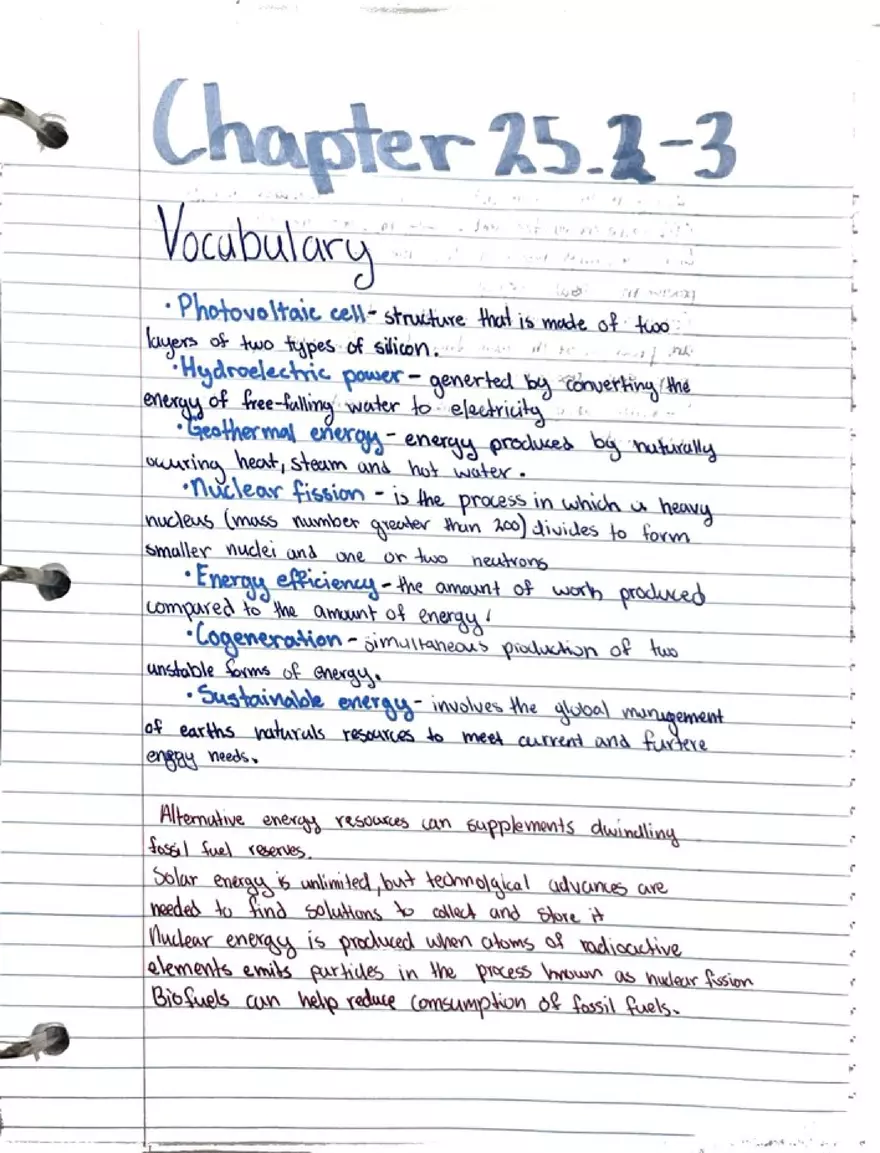 Chapter 25.2-3
Vocabulary
· Photovoltaic cell - structure that is made of two
layers of two types of silicon.
· Hydroelectric power - generted by converting the
energy of free-falling water to electricity
· Geothermal energy - energy produced by naturally
occuring heat, steam and hot water.
· Nuclear fission - is the process in which a heavy
nucleus (mass number greater than 200) divides to form
smaller nuclei and one or two neutrons
· Energy efficiency - the amount of work produced
compared to the amount of energy.
· Cogeneration - simultaneous production of two
unstable forms of energy.
· Sustainable energy - involves the global management
of earths naturals resources to meet current and furtere
energy needs.
Alternative energy resources can supplements dwindling
fossil fuel reserves.
Solar energy is unlimited, but technolgical advances are
needed to find solutions to collect and store it
Nuclear energy is produced when atoms of radioactive
elements emits particles in the process known as nuclear fission
Biofuels can help reduce comsumption of fossil fuels.